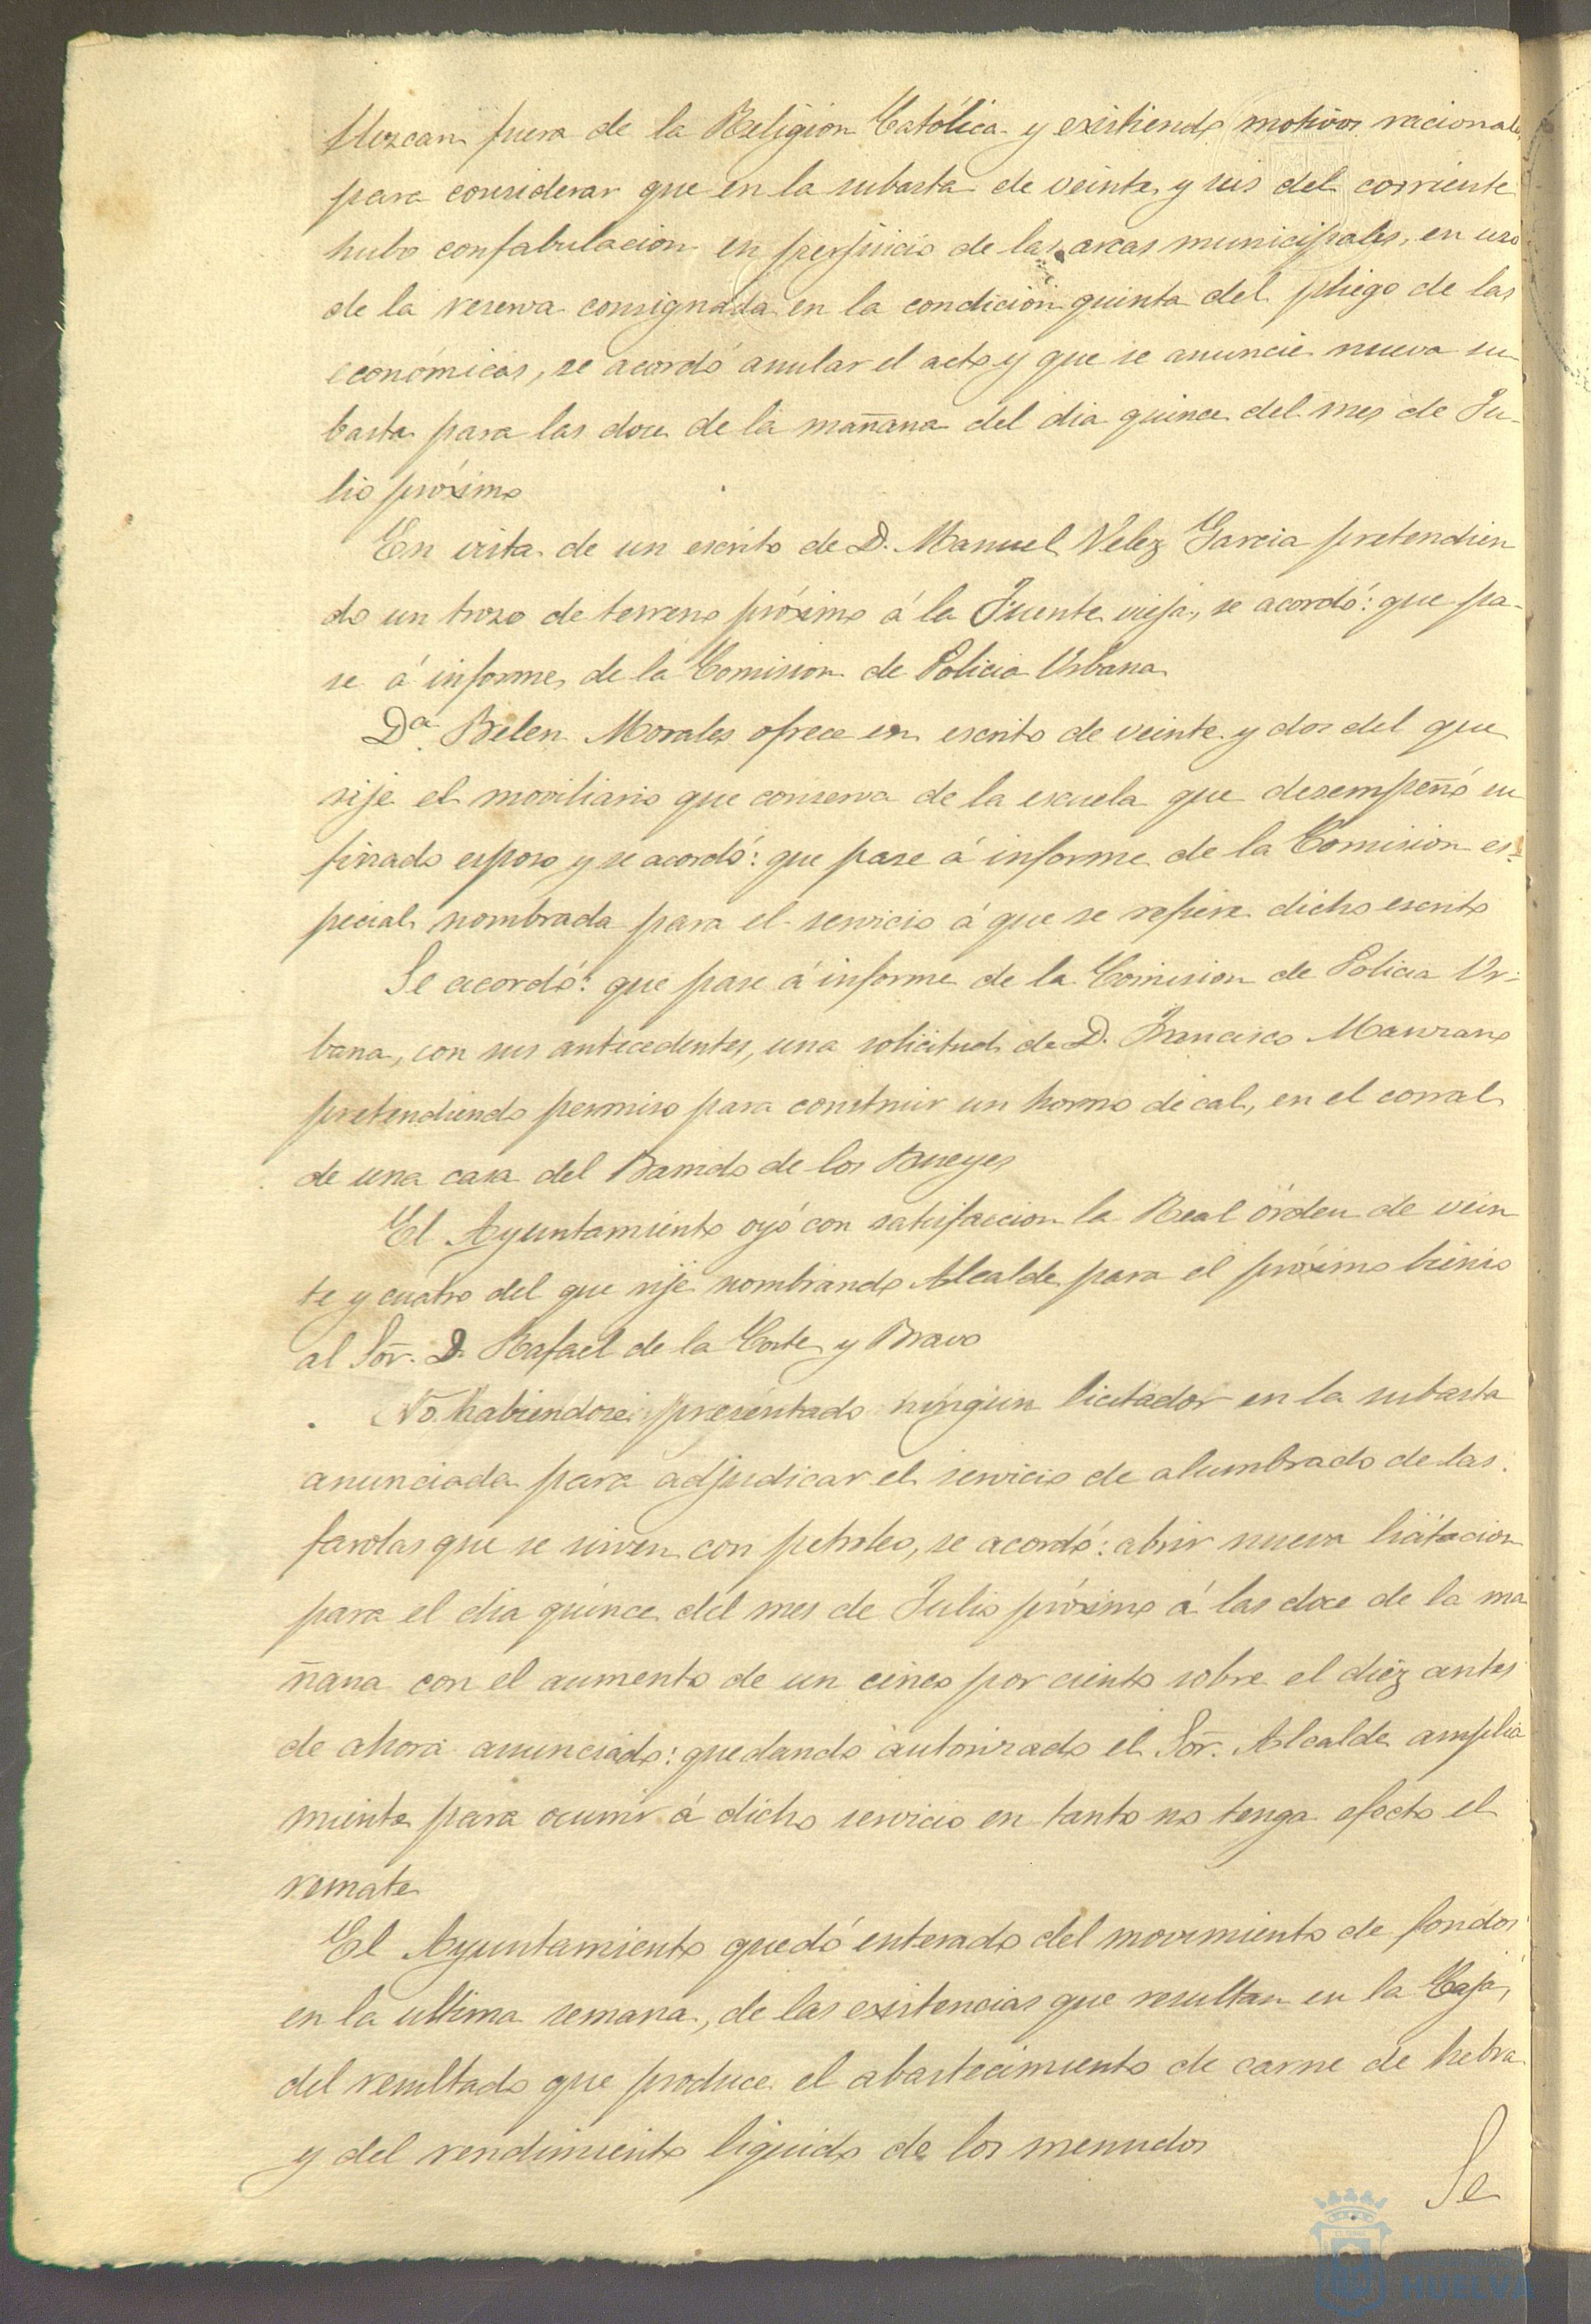 llezcan fuera de la Religión Católica y existiendo motivos racionales
para considerar que en la subasta de veinte y seis del corriente
hubo confabulación en perjuicio de las arcas municipales, en uso
de la reserva consignada en la condición quinta del pliego de las
económicas, se acordó anular el acto y que se anuncie nueva su-
basta para las doce de la mañana del dia quince del mes de Ju-
lio próximo
En vista de un escrito de D. Manuel Velez Garcia pretendien
do un trozo de terreno próximo á la Fuente vieja, se acordó: que pa-
se á informe de la Comision de Policia Urbana
Dª Belen Morales ofrece en escrito de veinte y dos del que
rije el moviliario que conserva de la escuela que desempeñó su
finado esposo y se acordó: que pase á informe de la Comision es-
pecial nombrada para el servicio á que se refiere dicho escrito
Se acordó: que pase á informe de la Comision de Policia Ur-
bana, con sus antecedentes, una solicitud de D. Francisco Manzano
pretendiendo permiso para construir un horno de cal, en el corral
de una casa del Barrido de los Bueyes
El Ayuntamiento oyó con satisfaccion la Real órden de vein
te y cuatro del que rije nombrando Alcalde para el próximo bienio
al Sor. D. Rafael de la Corte y Bravo
No habiendose presentado ningun licitador en la subasta
anunciada para adjudicar el servicio de alumbrado de las
farolas que se sirven con petroleo, se acordó: abrir nueva licitacion
para el dia quince del mes de Julio próximo á las doce de la ma
ñana con el aumento de un cinco por ciento sobre el diez antes
de ahora anunciado: quedando autorizado el Sor. Alcalde amplia
mente para ocurrir á dicho servicio en tanto no tenga efecto el
remate
El Ayuntamiento quedó enterado del movimiento de fondos
en la ultima semana, de las existencias que resultan en la Caja,
del resultado que produce el abastecimiento de carne de hebra
y del rendimiento liquido de los menudos
Se
HUELVA